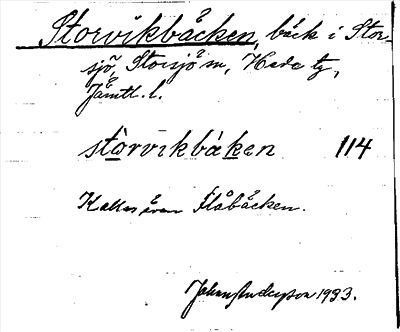 Storvikbäcken, bäck i Stor-
sjö, Storsjö sn, Hede tg,
Jämtl. l.
stòrvikbäken 114
Kallas även Flåbäcken.
Johan Anderson 1933.